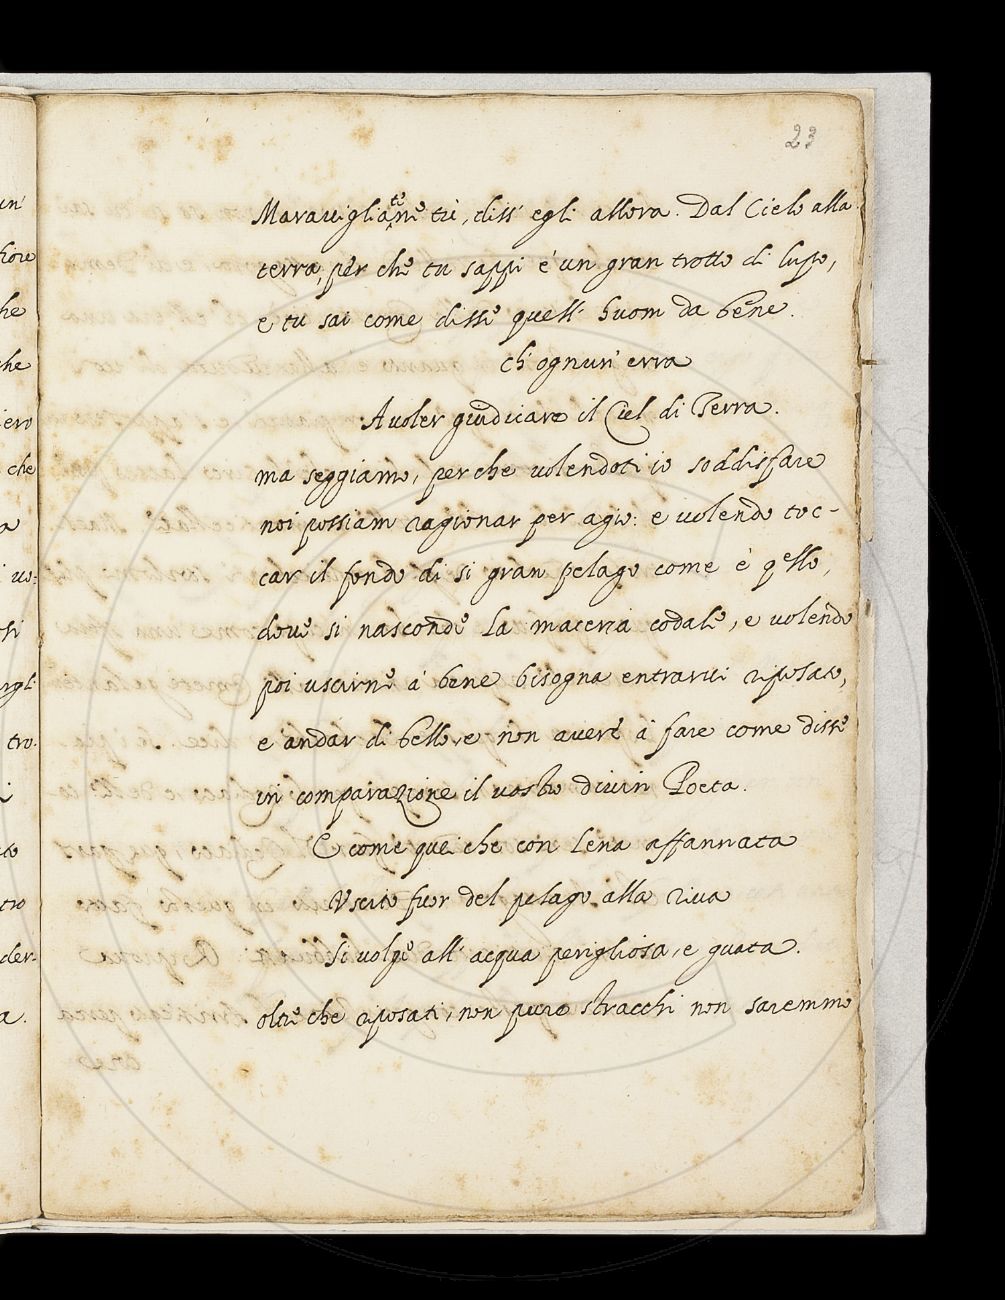 23
Marauigliane te tù, diss' egli allora. Dal Cielo alla
terra, per che tu sappi è un gran trotto di lupo,
e tu sai come disse quell' huom da bene.
ch' ognun' erra
A uoler giudicare il Ciel di Terra.
ma seggiamo, perche uolendoti io soddisfare
noi possiam ragionar per agio: e uolendo toc-
car il fondo di si gran pelago come è qello,
doue si nasconde la materia codale, e uolendo
poi uscirne à bene bisogna entrarui riposato,
e andar di bello, e non auere à fare come disse
in comparazione il uostro diuin Poeta.
E come quei che con lena affannata
Vscito fuor del pelago alla riua
Si volge all' acqua perigliosa, e guata.
oltre che riposati, non pure stracchi non saremmo
un'
fiore
he
che
iero
che
a
uo:
si
tro.
i
to
tro
der-
a.